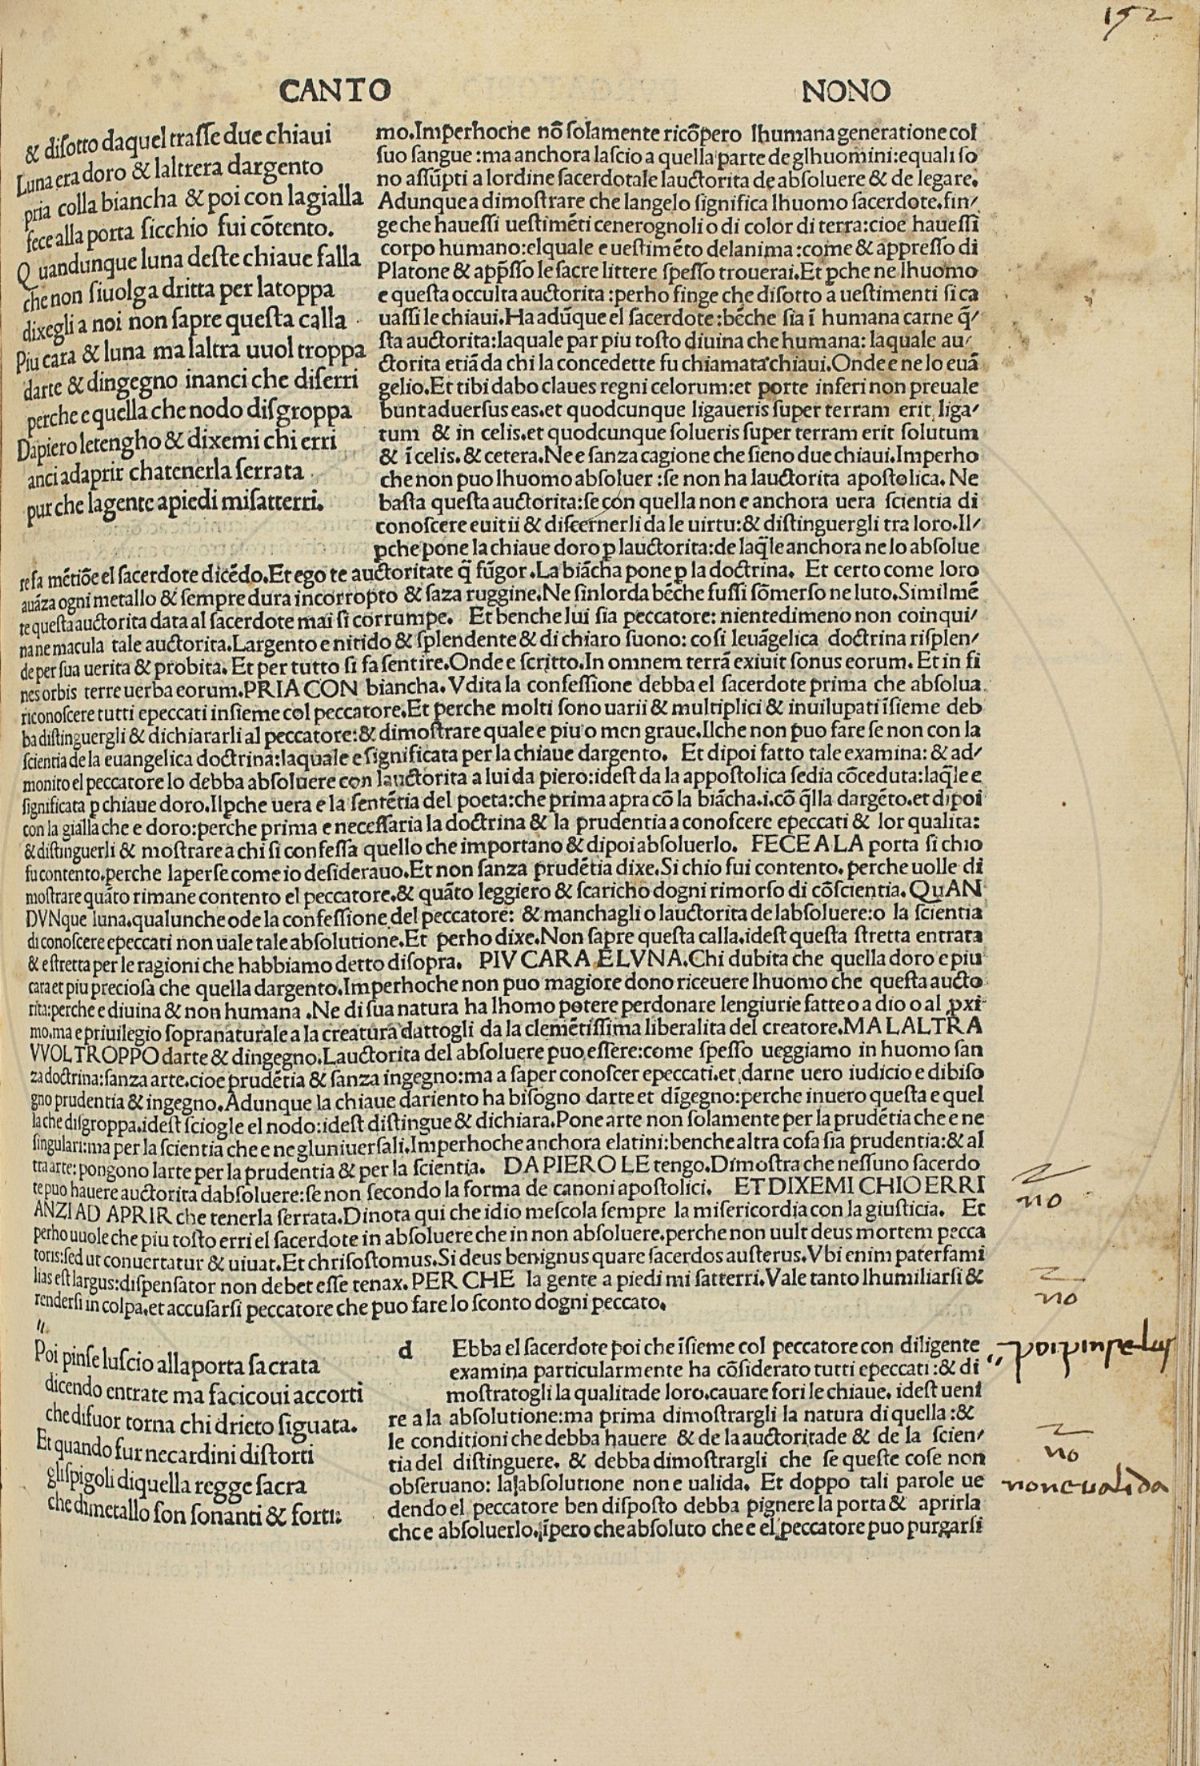 152
CANTO NONO
& diſotto daquel traſſe due chiaui
Luna era doro & laltrera dargento
pria colla biancha & poi con lagialla
fece alla porta ſicchio fui cōtento.
Quandunque luna deſte chiaue falla
che non ſiuolga dritta per latoppa
dixegli a noi non ſapre queſta calla
Piu cara & luna ma laltra uuol troppa
darte & dingegno inanci che diſerri
perche e quella che nodo diſgroppa
Dapiero letengho & dixemi chi erri
anci adaprir chatenerla ſerrata
pur che lagente apiedi miſatterri.
mo.Imperhoche nō ſolamente ricōpero lhumana generatione col
ſuo ſangue:ma anchora laſcio a quella parte de glhuomini:equali ſo
no aſſūpti a lordine ſacerdotale lauctorita de abſoluere & de legare.
Adunque a dimoſtrare che langelo ſignifica lhuomo ſacerdote.fin/
ge che haueſſi ueſtimēti cenerognoli o di color di terra:cioe haueſſi
corpo humano:elquale e ueſtimēto delanima:come & appreſſo di
Platone & app̄ſſo le ſacre littere ſpeſſo trouerai.Et ꝑche ne lhuomo
e queſta occulta auctorita:perho finge che diſotto a ueſtimenti ſi ca
uaſſi le chiaui.Ha adūque el ſacerdote:bēche ſia ī humana carne q̄/
ſta auctorita:laquale par piu toſto diuina che humana: laquale au/
ctorita etiā da chi la concedette fu chiamata chiaui.Onde e ne lo euā
gelio.Et tibi dabo claues regni celorum:et porte inferi non preuale
bunt aduerſus eas.et quodcunque ligaueris ſuper terram erit liga/
tum & in celis.et quodcunque ſolueris ſuper terram erit ſolutum
& ī celis.& cetera.Ne e ſanza cagione che ſieno due chiaui.Imperho
che non puo lhuomo abſoluer :ſe non ha lauctorita apoſtolica. Ne
baſta queſta auctorita:ſe con quella non e anchora uera ſcientia di
conoſcere euitii & diſcernerli da le uirtu:& diſtinguergli tra loro.Il/
ꝑche pone la chiaue doro ꝑ lauctorita:de laq̄le anchora ne lo abſolue
re fa mētiōe el ſacerdote dicēdo.Et ego te auctoritate q̄ fūgor.La biācha pone ꝑ la doctrina. Et certo come loro
auāza ogni metallo & ſempre dura incorropto & ſāza ruggine.Ne ſinlorda bēche fuſſi ſōmerſo ne luto.Similmē
te queſta auctorita data al ſacerdote mai ſi corrumpe. Et benche lui ſia peccatore: nientedimeno non coinqui/
na ne macula tale auctorita.Largento e nitido & ſplendente & di chiaro ſuono: coſi leuāgelica doctrina riſplen/
de per ſua uerita & probita. Et per tutto ſi fa ſentire.Onde e ſcritto.In omnem terrā exiuit ſonus eorum. Et in fi
nes orbis terre uerba eorum.PRIA CON biancha.Vdita la confeſſione debba el ſacerdote prima che abſolua
riconoſcere tutti epeccati inſieme col peccatore.Et perche molti ſono uarii & multiplici & inuilupati īſieme deb
ba diſtinguergli & dichiararli al peccatore:& dimoſtrare quale e piu o men graue.Ilche non puo fare ſe non con la
ſcientia de la euangelica doctrina:laquale e ſignificata per la chiaue dargento. Et dipoi fatto tale examina: & ad/
monito el peccatore lo debba abſoluere con lauctorita a lui da piero:ideſt da la appoſtolica ſedia cōceduta:laq̄le e
ſignificata ꝑ chiaue doro.Ilꝑche uera e la ſentētia del poeta:che prima apra cō la biācha.i.cō q̄lla dargēto.et dipoi
con la gialla che e doro:perche prima e neceſſaria la doctrina & la prudentia a conoſcere epeccati & lor qualita:
& diſtinguerli & moſtrare a chi ſi confeſſa quello che importano & dipoi abſoluerlo. FECE A LA porta ſi chio
fu contento.perche laperſe come io deſiderauo.Et non ſanza prudētia dixe.Si chio fui contento. perche uolle di
moſtrare quāto rimane contento el peccatore.& quāto leggiero & ſcaricho dogni rimorſo di cōſcientia.QuAN
DVNque luna.qualunche o de la confeſſione del peccatore: & manchagli o lauctorita de labſoluere:o la ſcientia
di conoſcere epeccati non uale tale abſolutione.Et perho dixe.Non ſapre queſta calla.ideſt queſta ſtretta entrata
& e ſtretta per le ragioni che habbiamo detto diſopra. PIV CARA E LVNA.Chi dubita che quella doro e piu
cara et piu precioſa che quella dargento.Imperhoche non puo magiore dono riceuere lhuomo che queſta aucto
rita:perche e diuina & non humana .Ne di ſua natura ha lhomo potere perdonare lengiurie fatte o a dio o al ꝓxi
mo.ma e priuilegio ſopranaturale a la creatura dattogli da la clemētiſſima liberalita del creatore.MA LALTRA
VVOL TROPPO darte & dingegno.Lauctorita del abſoluere puo eſſere:come ſpeſſo ueggiamo in huomo ſan
za doctrina:ſanza arte.cioe prudētia & ſanza ingegno:ma a ſaper conoſcer epeccati.et darne uero iudicio e dibiſo
gno prudentia & ingegno.Adunque la chiaue dariento ha biſogno darte et dīgegno:perche inuero queſta e quel
la che diſgroppa.ideſt ſciogle el nodo:ideſt diſtingue & dichiara.Pone arte non ſolamente per la prudētia che e ne
ſingulari:ma per la ſcientia che e ne gluniuerſali.Imperhoche anchora elatini:benche altra coſa ſia prudentia:& al
tra arte:pongono larte per la prudentia & per la ſcientia. DA PIERO LE tengo.Dimoſtra che neſſuno ſacerdo
te puo hauere auctorita dabſoluere:ſe non ſecondo la forma de canoni apoſtolici. ET DIXEMI CHIO ERRI
ANZI AD APRIR che tenerla ſerrata.Dinota qui che idio meſcola ſempre la miſericordia con la giuſticia. Et
perho uuole che piu toſto erri el ſacerdote in abſoluere che in non abſoluere.perche non uult deus mortem pecca
toris:ſed ut conuertatur & uiuat.Et chriſoſtomus.Si deus benignus quare ſacerdos auſterus.Vbi enim paterfami
lias eſt largus:diſpenſator non debet eſſe tenax.PER CHE la gente a piedi mi ſatterri.Vale tanto lhumiliarſi &
renderſi in colpa.et accuſarſi peccatore che puo fare lo ſconto dogni peccato.
no
no
Poi pinſe luſcio alla porta ſacrata
dicendo entrate ma facicoui accorti
che difuor torna chi drieto ſiguata.
Et quando fur necardini diſtorti
gliſpigoli di quella regge ſacra
che dimetallo ſon ſonanti & forti:
d Ebba el ſacerdote poi che īſieme col peccatore con diligente
examina particularmente ha cōſiderato tutti epeccati:& di
moſtratogli la qualitade loro.cauare fori le chiaue. ideſt ueni
re a la abſolutione:ma prima dimoſtrargli la natura di quella:&
le conditioni che debba hauere & de la auctoritade & de la ſcien/
tia del diſtinguere. & debba dimoſtrargli che ſe queſte coſe non
obſeruano: la abſolutione non e ualida. Et doppo tali parole ue
dendo el peccatore ben diſpoſto debba pignere la porta & aprirla
che e abſoluerlo.īpero che abſoluto che e el peccatore puo purgarſi
poi pinſe luſ
no
non e ualida